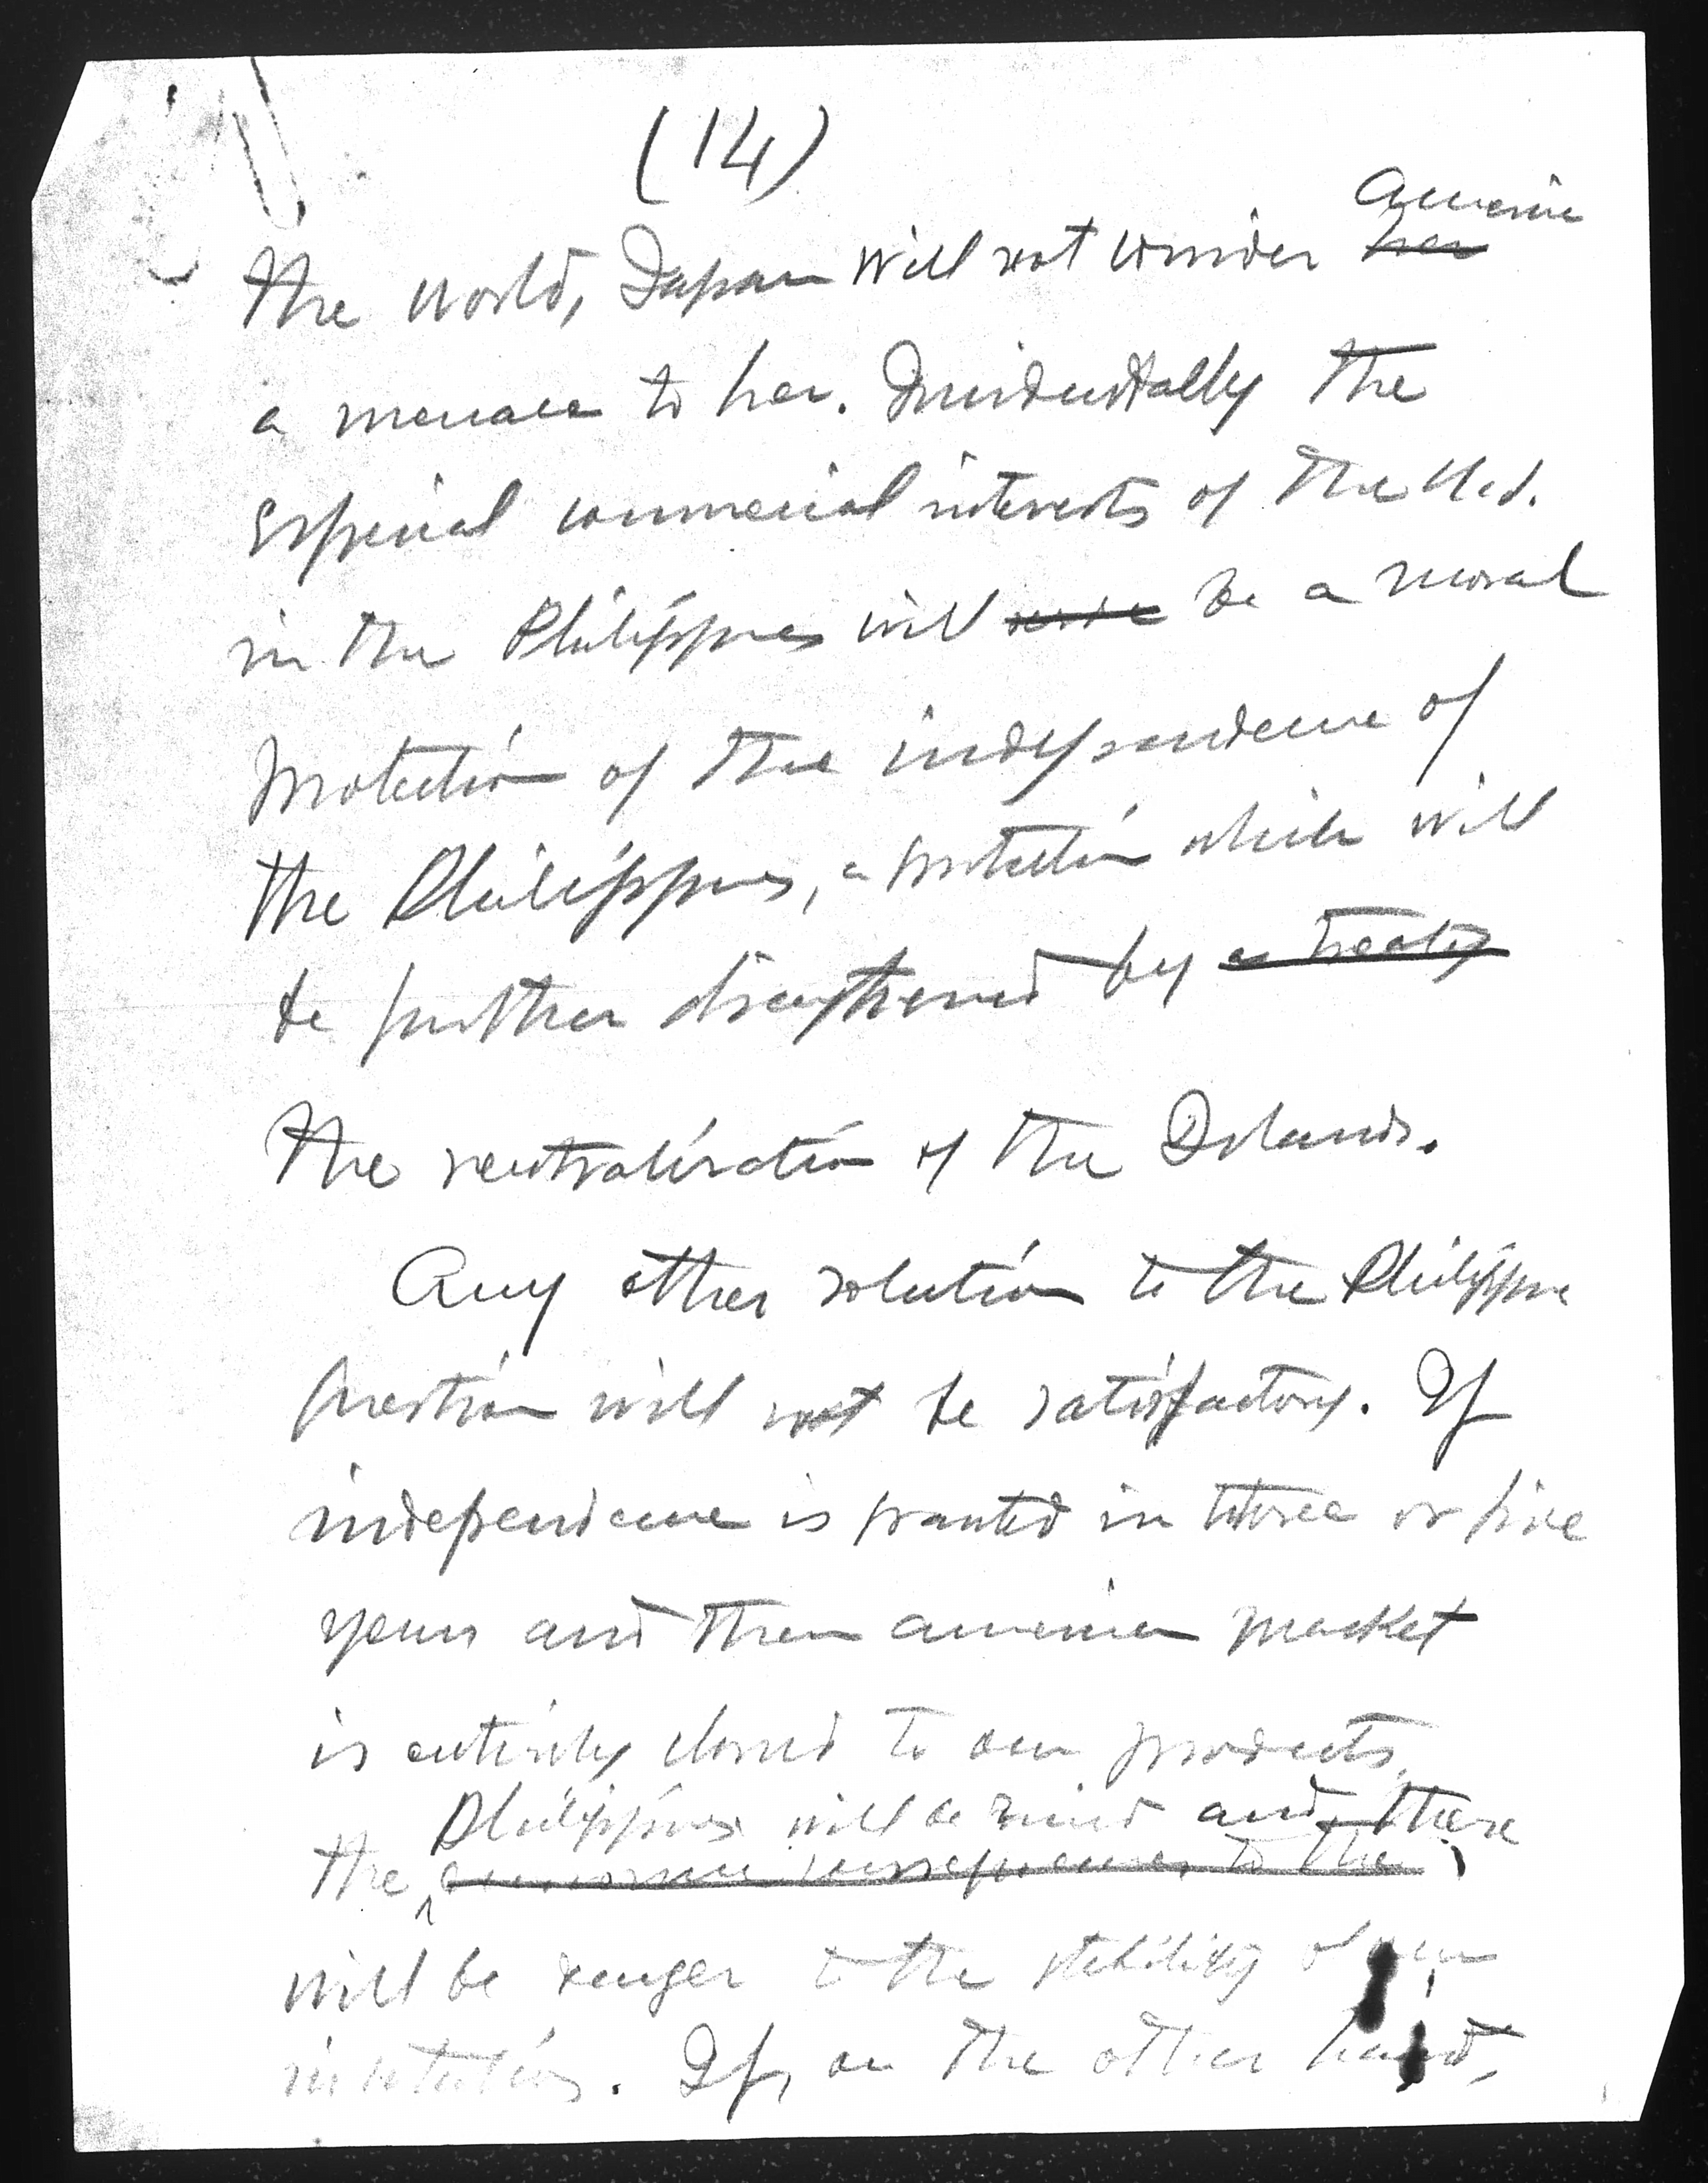 (14)
America
the world, Japan will not consider her
a menace to her. Incidentally the
especial commercial interests of the U.S.
in the Philippines will be a moral
protection of the independence of
the Philippines, a protection which will
be further strengthened by a treaty
the neutralization of the Islands.
Any other solution to the Philippine
question will not be satisfactory. If
independence is granted in three or five
years and then american market
is entirely closed to our products,
Philippines will be ruined and there
the consequences to the
will be danger to the stability of our
institutions. If, on the other hand,